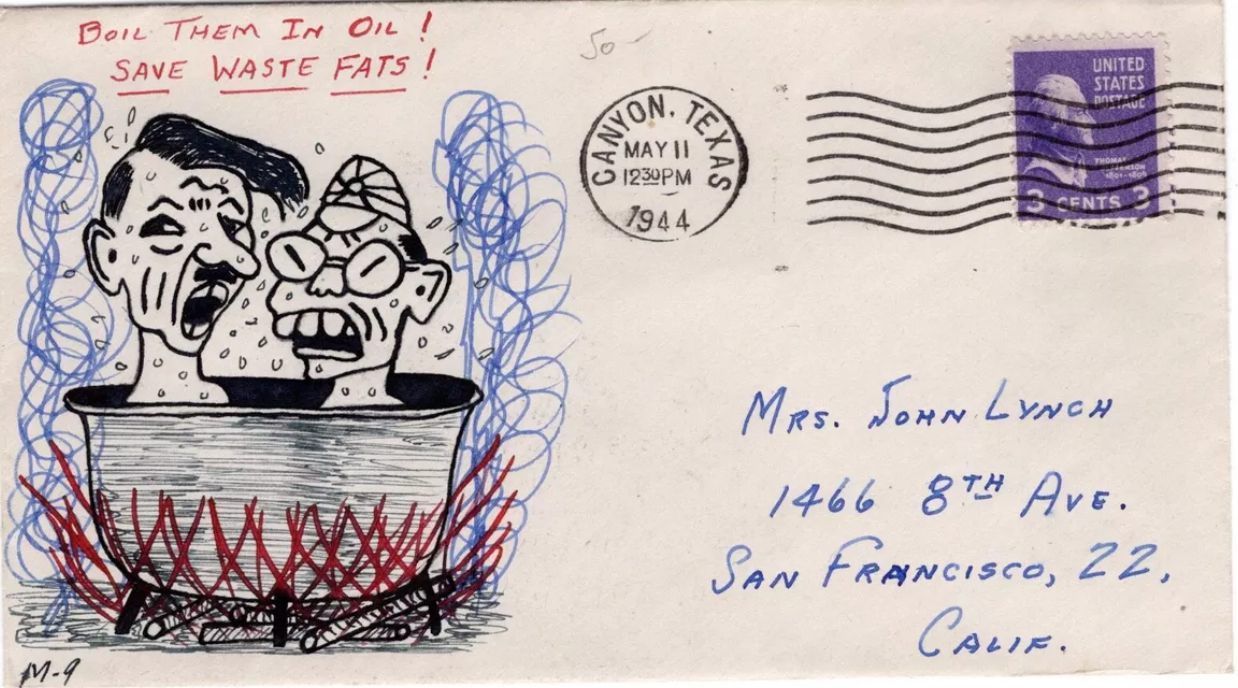 BOIL THEM IN OIL!
SAVE WASTE FATS!
50-
CANYON, TEXAS
MAY 11
12 30 PM
1944
UNITED
STATES
POSTAGE
THOMAS
JEFFERSON
1801-1809
3 CENTS 3
MRS. JOHN LYNCH
1466 8TH AVE.
SAN FRANCISCO, 22,
CALIF.
M-9